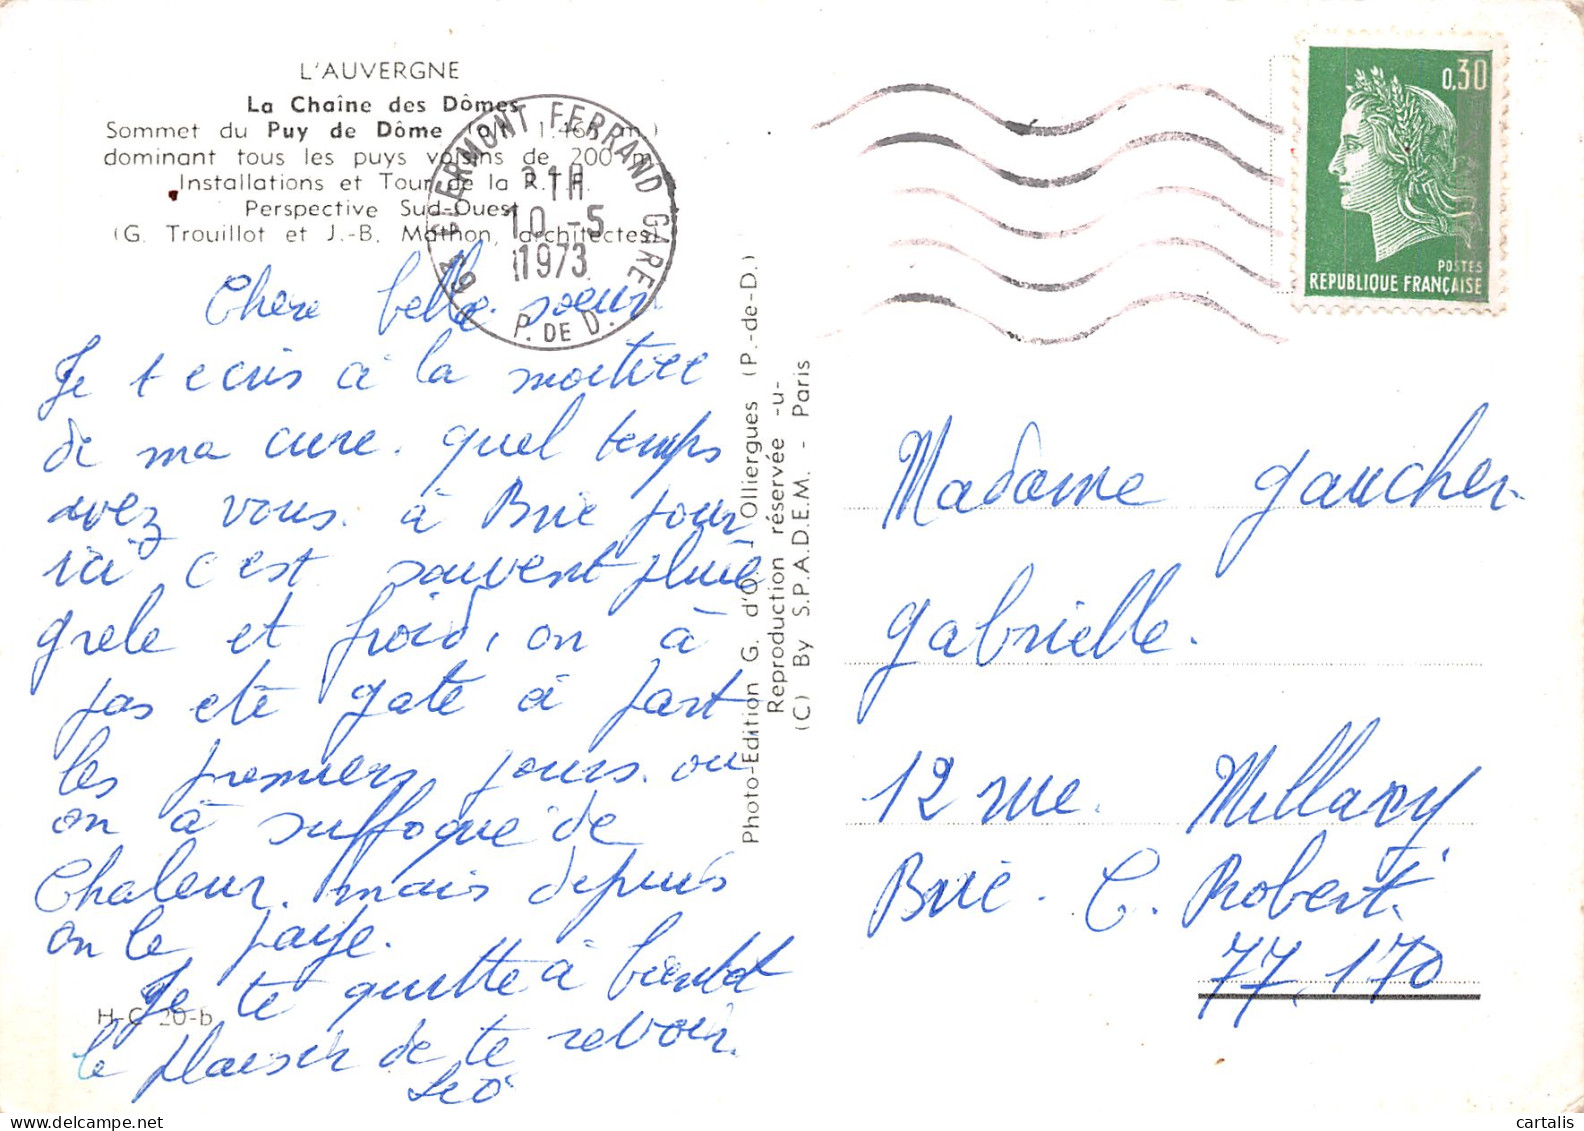 L'AUVERGNE
La Chaîne des Dômes
Sommet du Puy de Dôme (alt. 1.465 m.)
dominant tous les puys voisins de 200 m.
Installations et Tour de la R.T.F.
Perspective Sud-Ouest
(G. Trouillot et J.-B. Mathon, architectes)
63 CLERMONT FERRAND GARE
21H
10-5
1973
P. DE D.
0,30
POSTES
REPUBLIQUE FRANÇAISE
Chere belle soeur
Je t ecris à la moitiee
de ma cure. quel temps
avez vous à Brie pour
ici c'est souvent pluie
grele et froid, on à
pas eté gaté à part
les premiers jours. ou
on à suffoqué de
Chaleur. mais depuis
on le paye.
Je te quitte à bientot
le plaisir de te revoir.
Léo
H-C 20-b
Photo-Edition G. d'O. - Olliergues (P.-de-D.)
Reproduction réservée -u-
(C) By S.P.A.D.E.M. - Paris
Madame Gaucher
Gabrielle.
12 rue. Millary
Brie. C. Robert.
77.170
cartalis